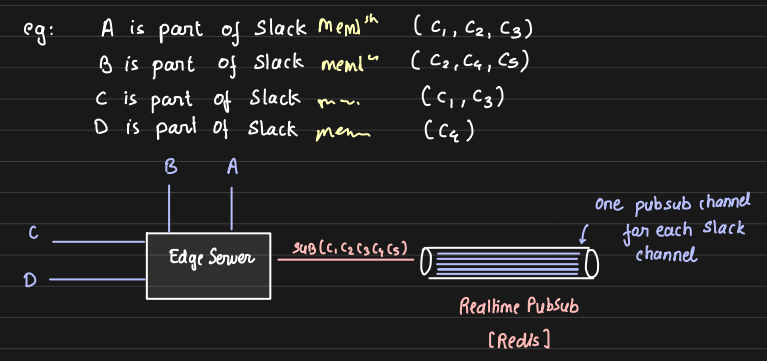 eg: A is part of Slack (C1, C2, C3)
B is part of Slack (C2, C4, C5)
C is part of Slack (C1, C3)
D is part of Slack (C4)
B A
C
D
Edge Server
SUB(C1 C2 C3 C4 C5)
one pubsub channel
for each Slack
channel
Realtime PubSub
[Redis]